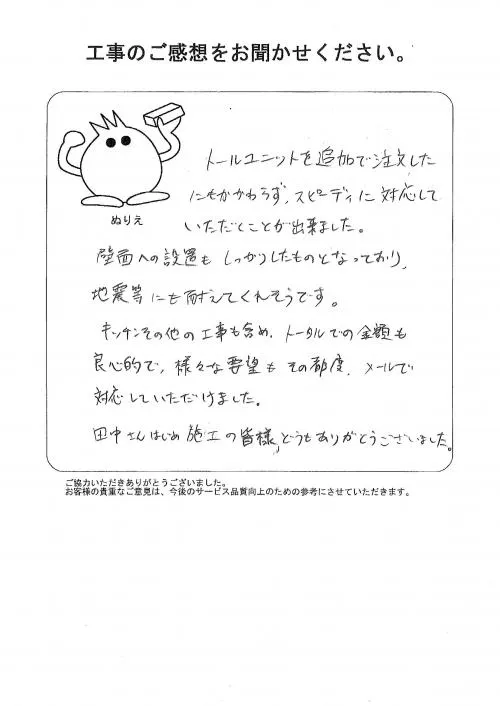 工事のご感想をお聞かせください。
トールユニットを追加で注文した
にもかかわらず、スピーディに対応して
いただくことが出来ました。
ぬりえ
壁面への設置も しっかりしたものとなっており、
地震等にも耐えてくれそうです。
キッチンその他の工事も含め、トータルでの金額も
良心的で、様々な要望も その都度、メールで
対応していただけました。
田中さんはじめ 施工の皆様、どうもありがとうございました。
ご協力いただきありがとうございました。
お客様の貴重なご意見は、今後のサービス品質向上のための参考にさせていただきます。